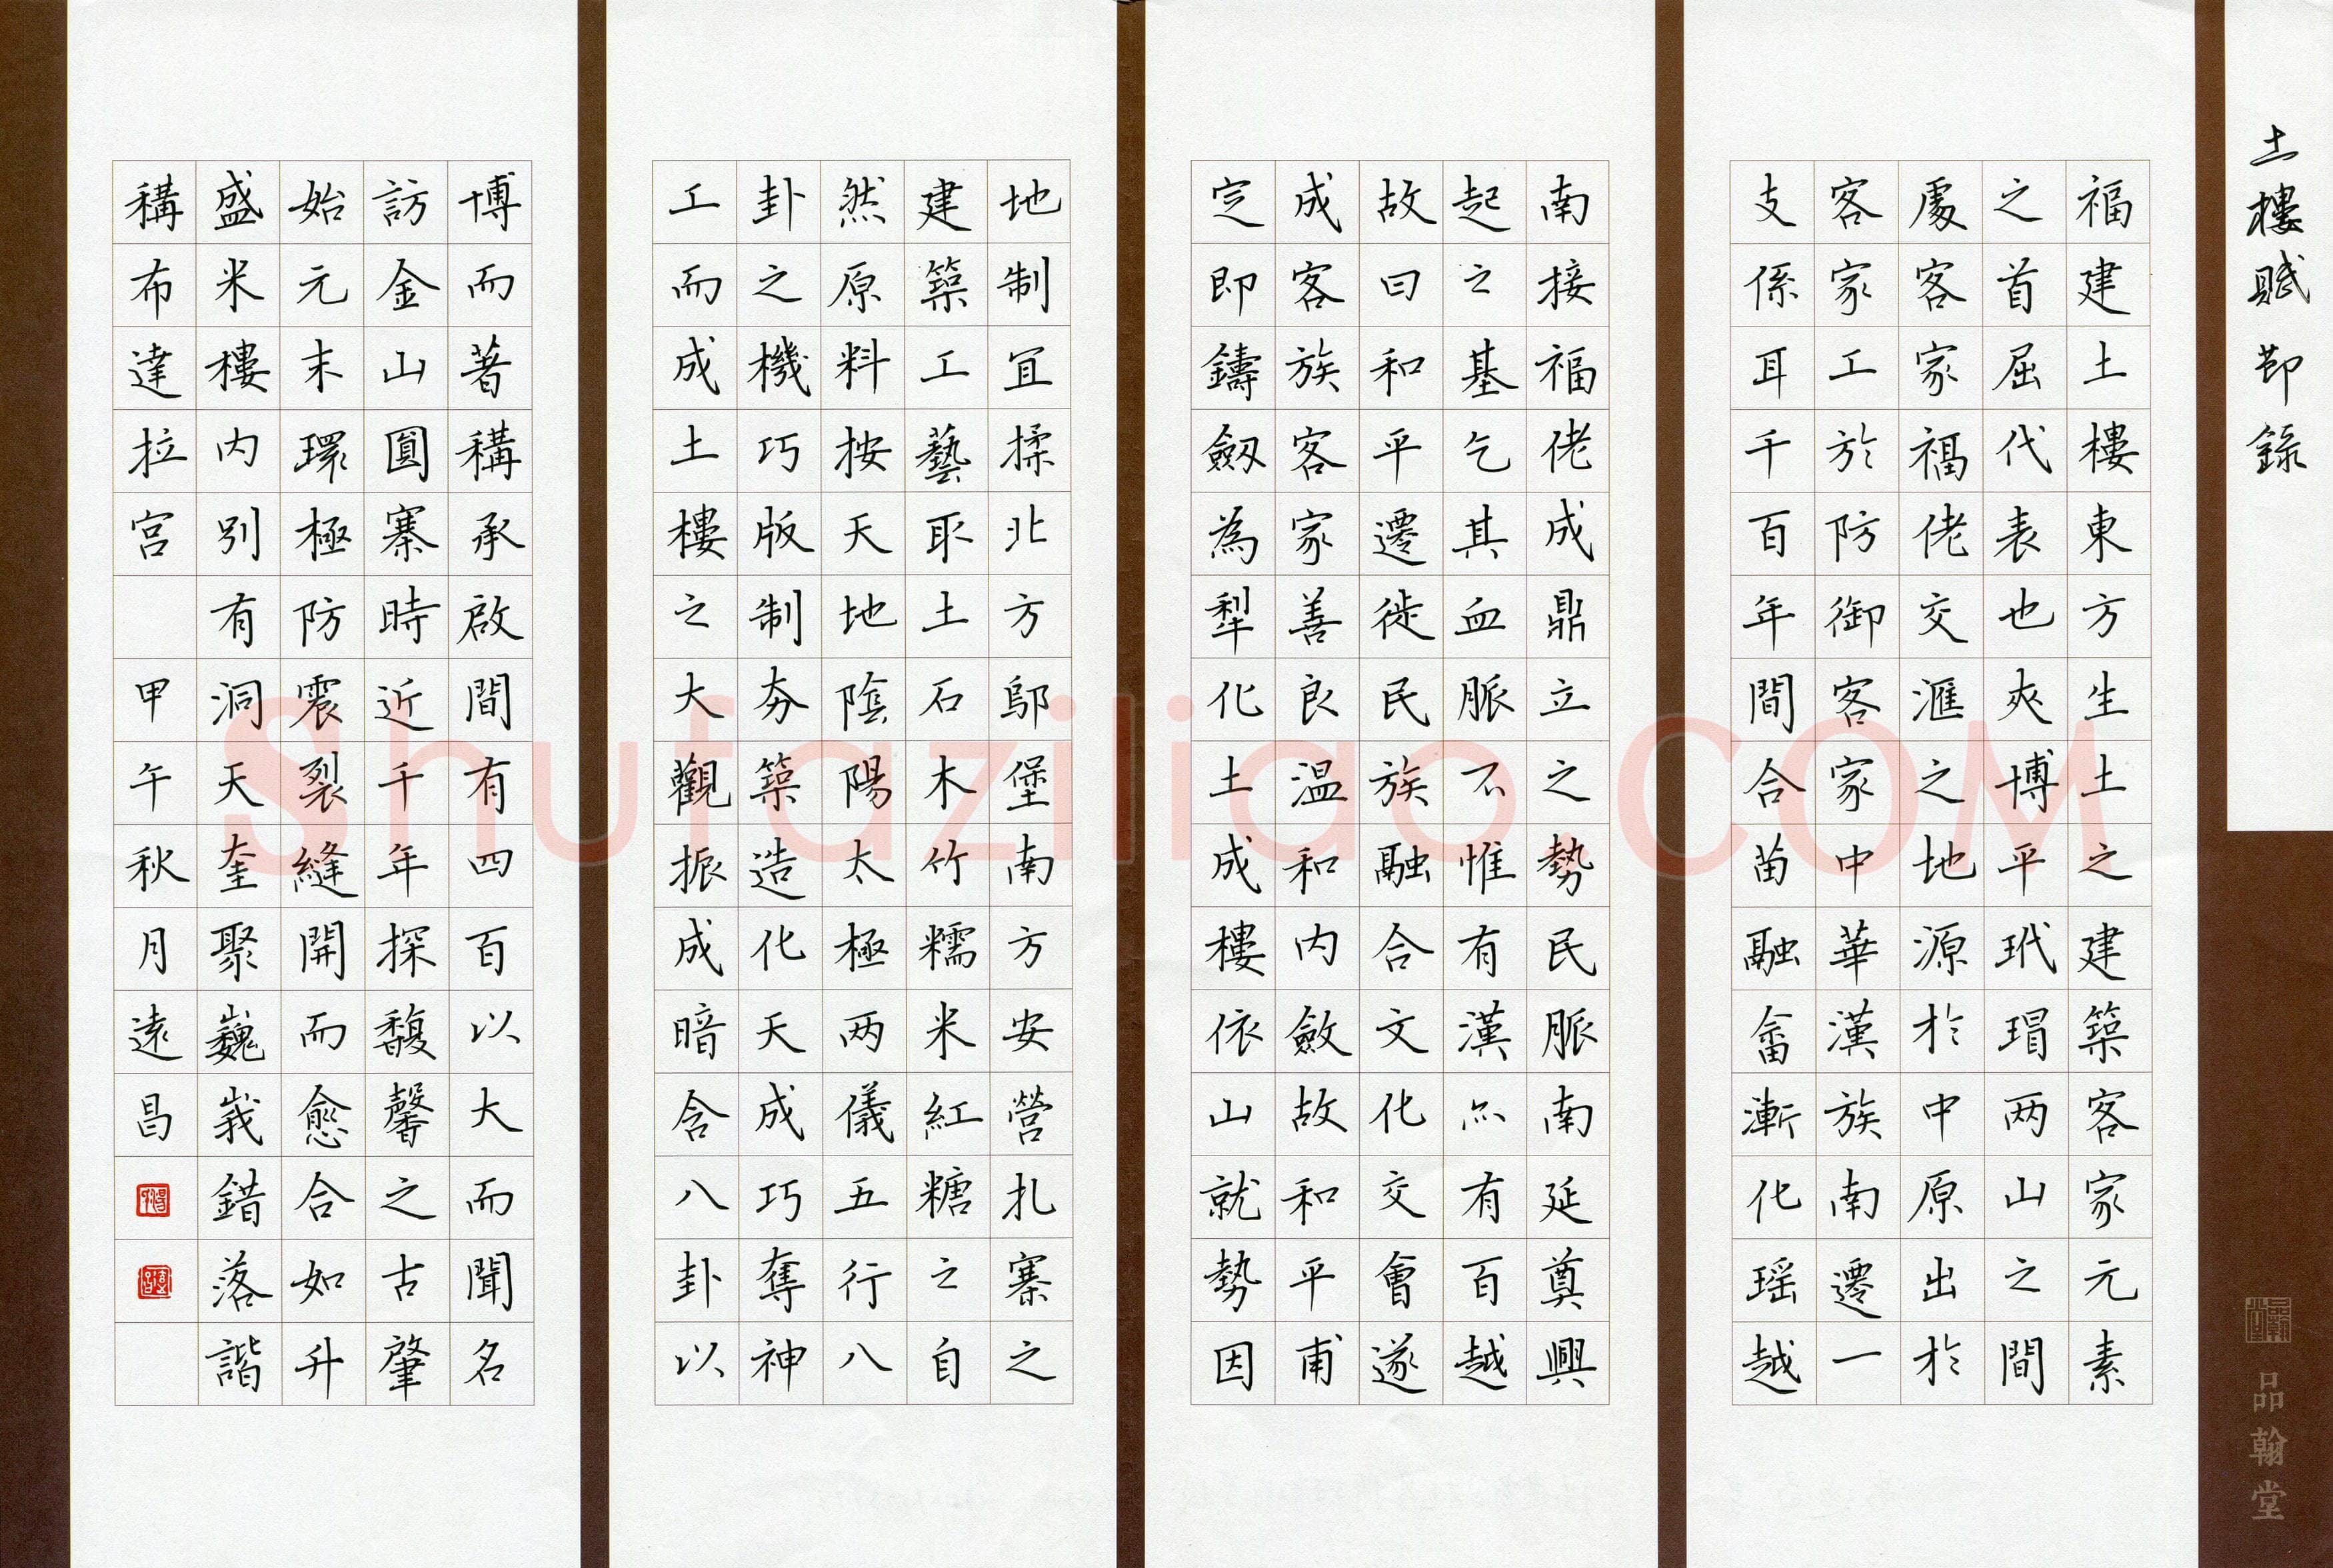 土樓賦節錄
福建土樓東方生土之建築客家元素
之首屈代表也夾博平玳瑁两山之間
處客家福佬交滙之地源於中原出於
客家工於防御客家中華漢族南遷一
支係耳千百年間合苗融畬漸化瑶越
南接福佬成鼎立之勢民脈南延奠興
起之基乞其血脈不惟有漢尒有百越
故曰和平遷徙民族融合文化交會遂
成客族客家善良温和内斂故和平甫
定即鑄劔為犁化土成樓依山就勢因
地制宜揉北方鄔堡南方安營扎寨之
建築工藝取土石木竹糯米紅糖之自
然原料按天地陰陽太極两儀五行八
卦之機巧版制夯築造化天成巧奪神
工而成土樓之大觀振成暗含八卦以
博而著稱承啟間有四百以大而聞名
訪金山圓寨時近千年探馥馨之古肇
始元末環極防震裂縫開而愈合如升
盛米樓内別有洞天奎聚巍峩錯落諧
稱布達拉宫 甲午秋月遠昌
品翰堂
Shufaziliao.COM